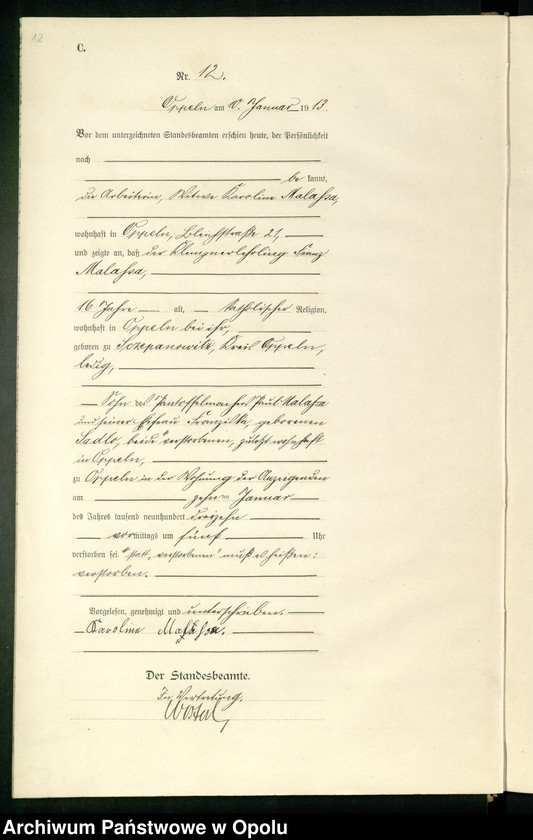 12
C.
Nr. 12.
Oppeln am 10. Januar 1913.
Vor dem unterzeichneten Standesbeamten erschien heute, der Persönlichkeit
nach
be kannt,
die Arbeiterin, Witwe Karoline Malassa,
wohnhaft in Oppeln, 21,
und zeigte an, daß der Klempnerlehrling Franz
Malassa,
16 Jahre alt, katholischer Religion,
wohnhaft in Oppeln bei ihr,
geboren zu Sczepanowitz, Kreis Oppeln,
ledig,
Sohn des Pantoffelmachers Paul Malassa
und seiner Ehefrau Franziska, geborenen
Sadlo, beide verstorbenen, zuletzt wohnhaft
in Oppeln,
zu Oppeln in der Wohnung der Anzeigenden
am zehnten Januar
des Jahres tausend neunhundert dreizehn
vormittags um fünf Uhr
verstorben sei. statt „verstorbenen" muß es heißen:
verstorben.
Vorgelesen, genehmigt und unterschrieben.
Karoline Malassa.
Der Standesbeamte.
In Vertretung.
Archiwum Państwowe w Opolu